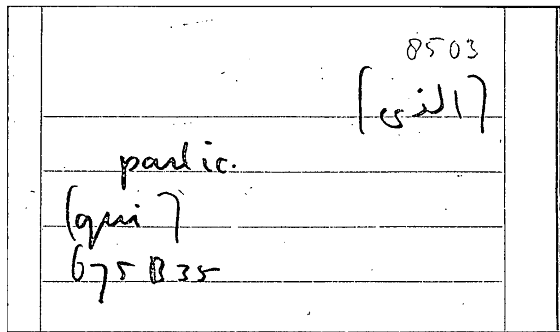 8503
[الذى]
partic.
[qui]
675 B 35